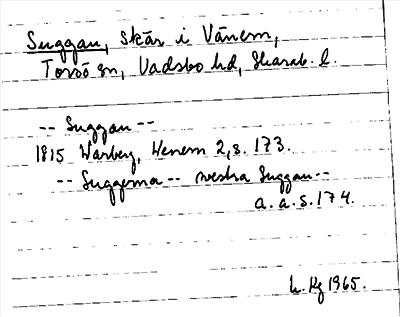 Suggan, skär i Vänern,
Torsö sn, Vadsbo hd, Skarab. l.
-- Suggan --
1815 Warberg, Wenern 2, s. 173.
-- Suggorna -- westra Suggan --
a. a. s. 174.
1965.